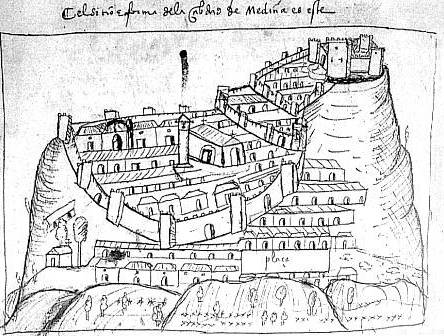 El sitio e forma dela çibdad de Mediña es este
plaça